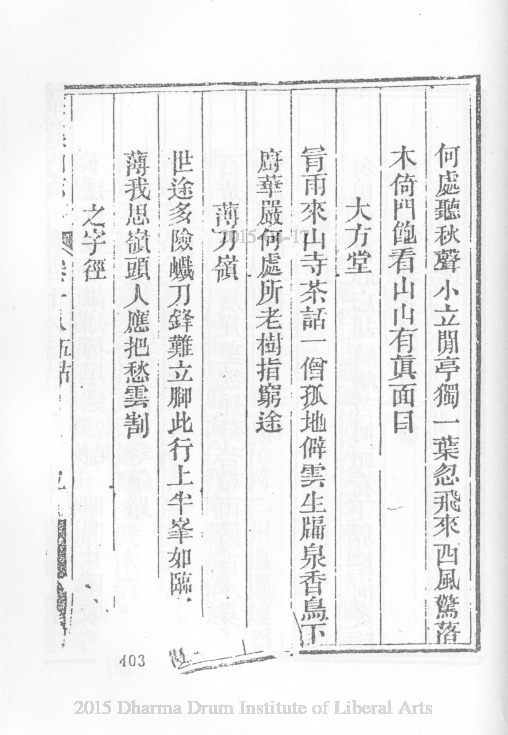 何處聽秋聲小立閒亭獨一葉忽飛來西風驚落
木倚門飽看山山有眞面目
大方堂
冐雨來山寺茶話一僧孤地僻雲生牖泉香鳥下
廚華嚴何處所老樹指窮途
薄刀嶺
世途多險巇刀鋒難立腳此行上半峯如臨
薄我思嶺頭人應把愁雲割
之字徑
卷十八五詁
103
2015 Dharma Drum Institute of Liberal Arts